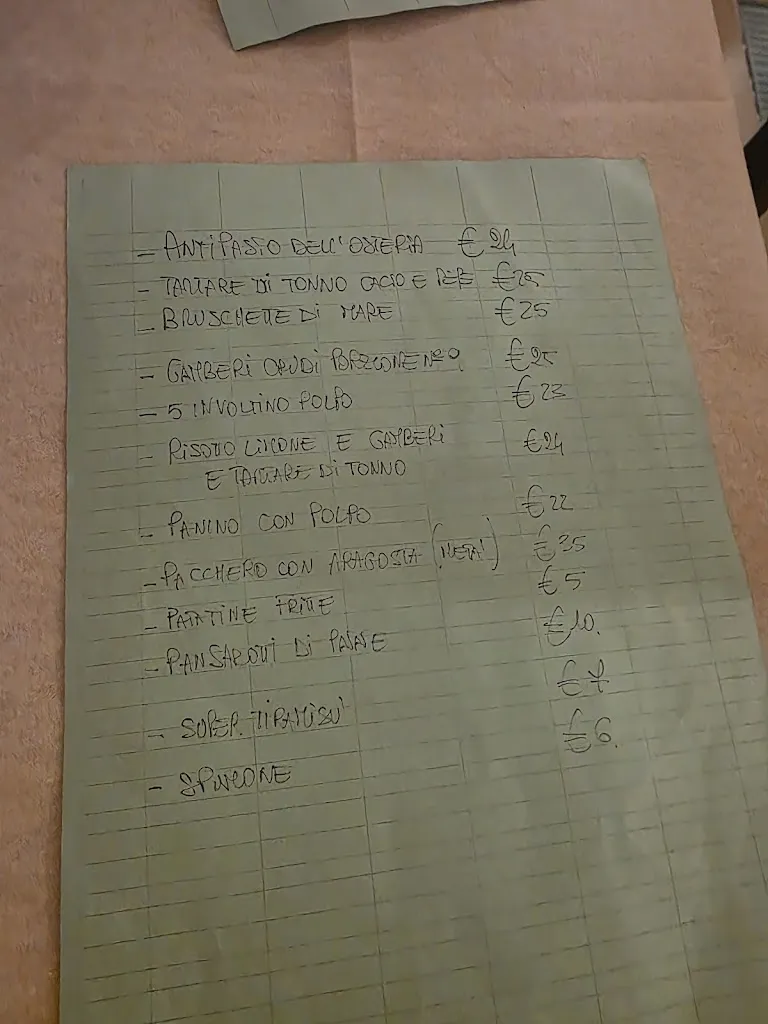 - ANTIPASTO DELL'OSTERIA € 24
- TARTARE DI TONNO CACIO E PEPE €25
- BRUSCHETTE DI MARE €25
- GAMBERI CRUDI PORZIONE N° 9. €25
- 5 INVOLTINO POLPO €23
- RISOTTO LIMONE E GAMBERI €24
E TARTARE DI TONNO
- PANINO CON POLPO €22
- PACCHERO CON ARAGOSTA (META') €35
- PATATINE FRITTE €5
- PANSAROTTI DI PATATE €10.
- SUPER TIRAMISU' €7
- SPUMONE €6.